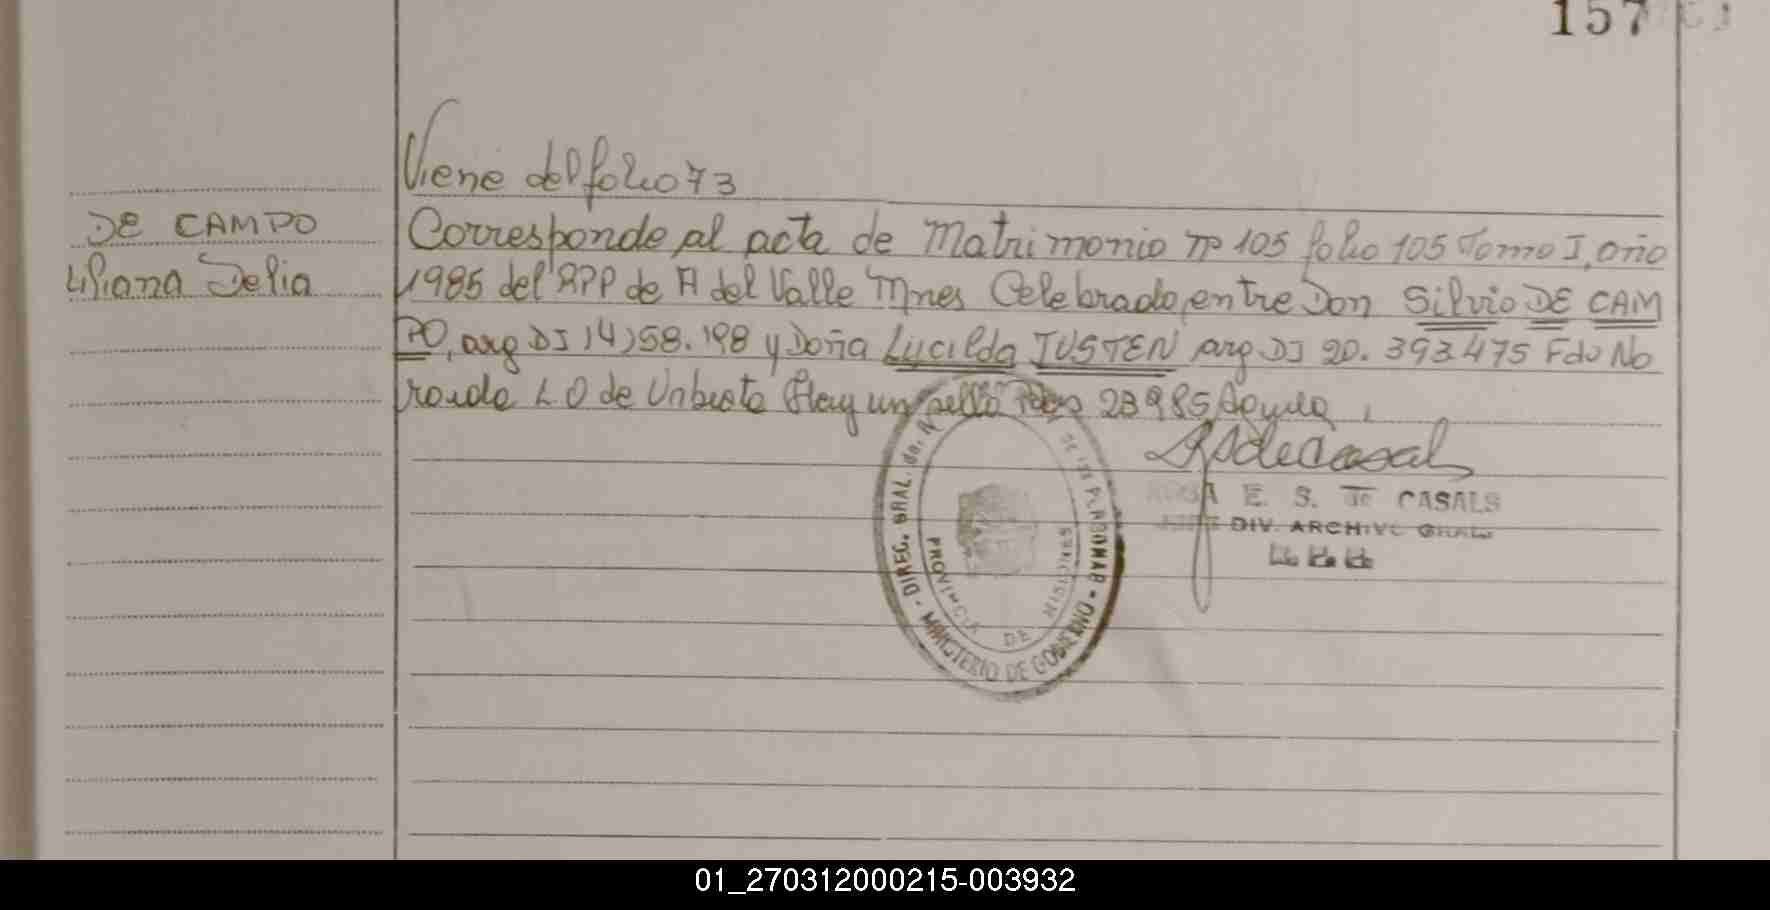 157
Viene del folio 73
DE CAMPO
Liliana Delia
Corresponde al acta de Matrimonio nº 105 folio 105 Tomo I, año
1985 del RPP de A del Valle Mnes Celebrado entre Don Silvio DE CAM
PO, arg DI 14)58.198 y Doña Lucilda IUSTEN arg DI 20.393.475 Fdo No
Hay un sello Pdas 23985
E. S. de CASALS
DIV. ARCHIVO GRAL
DIREC. GRAL. DE LAS PERSONAS - MINISTERIO DE GOBIERNO
PROVINCIA DE MISIONES
01_270312000215-003932